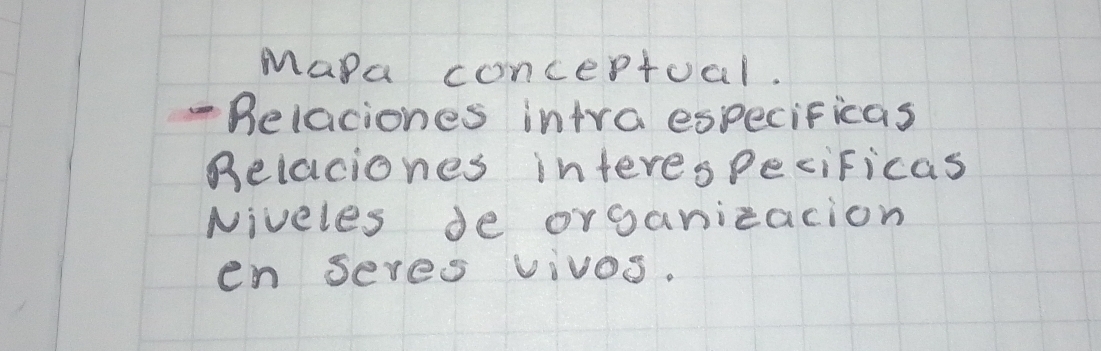 Mapa conceptual.
- Relaciones intra especificas
Relaciones interespecificas
Niveles de organizacion
en seres vivos.